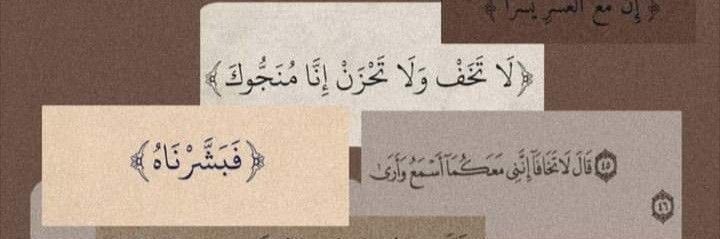 ﴿ إِنَّ مَعَ الْعُسْرِ يُسْرًا ﴾
﴿لَا تَخَفْ وَلَا تَحْزَنْ إِنَّا مُنَجُّوكَ﴾
﴿فَبَشَّرْنَاهُ﴾
٤٥ قَالَ لَا تَخَافَآ إِنَّنِى مَعَكُمَآ أَسْمَعُ وَأَرَىٰ
٤٦